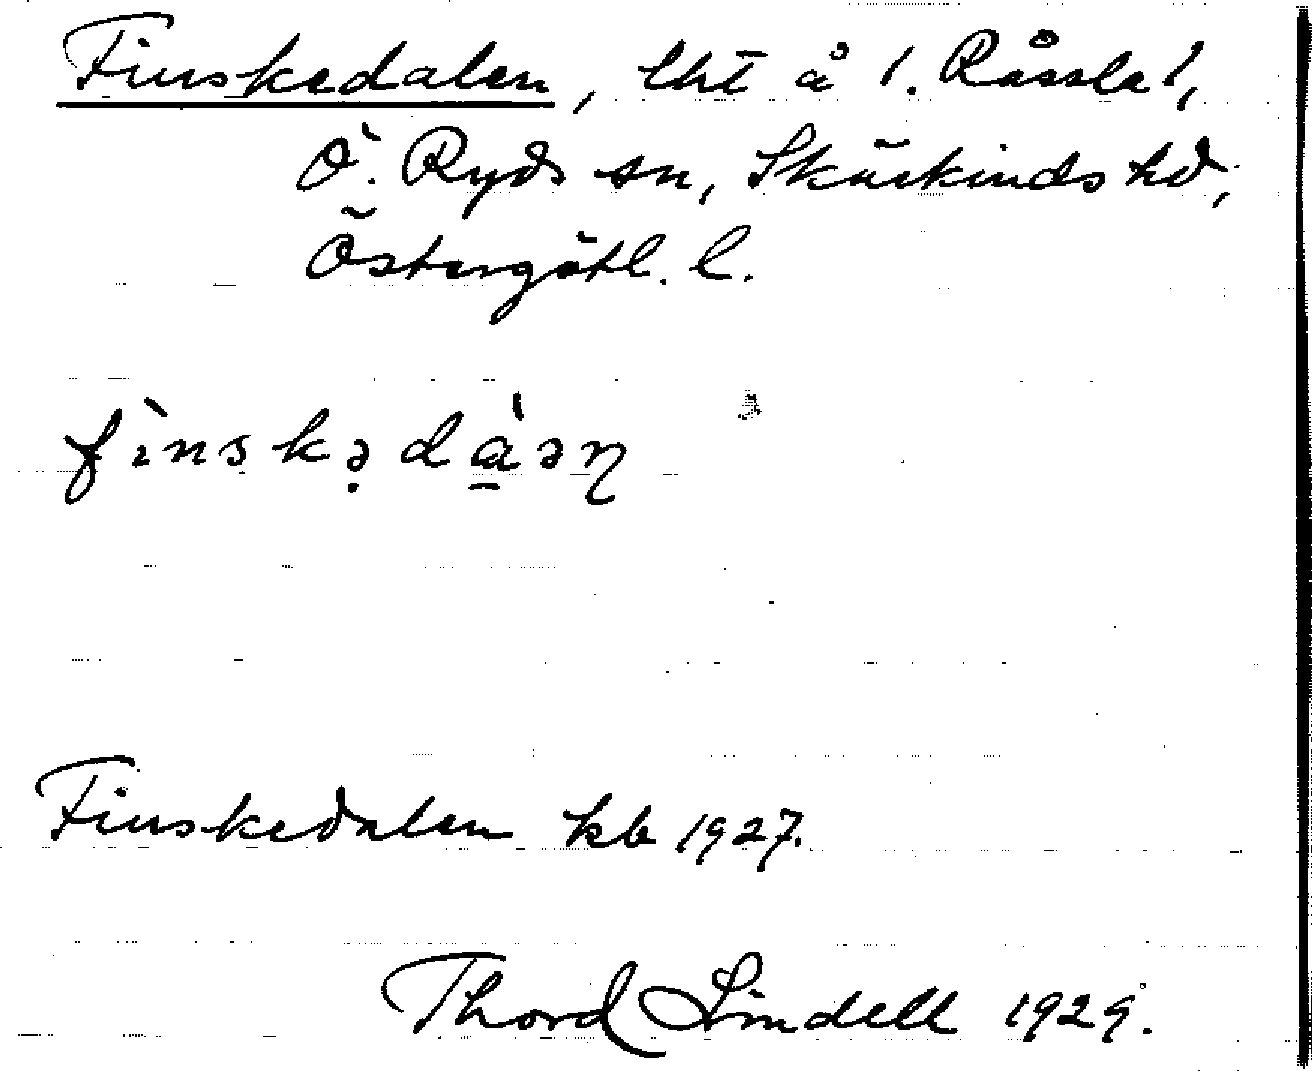 Finskedalen, lht å 1. Råssla 1,
Ö. Ryds sn, Skärkinds hd,
Östergötl. l.
fìnskə̣dà̱əɳ
Finskedalen kb 1927.
Thord Lindell 1929.